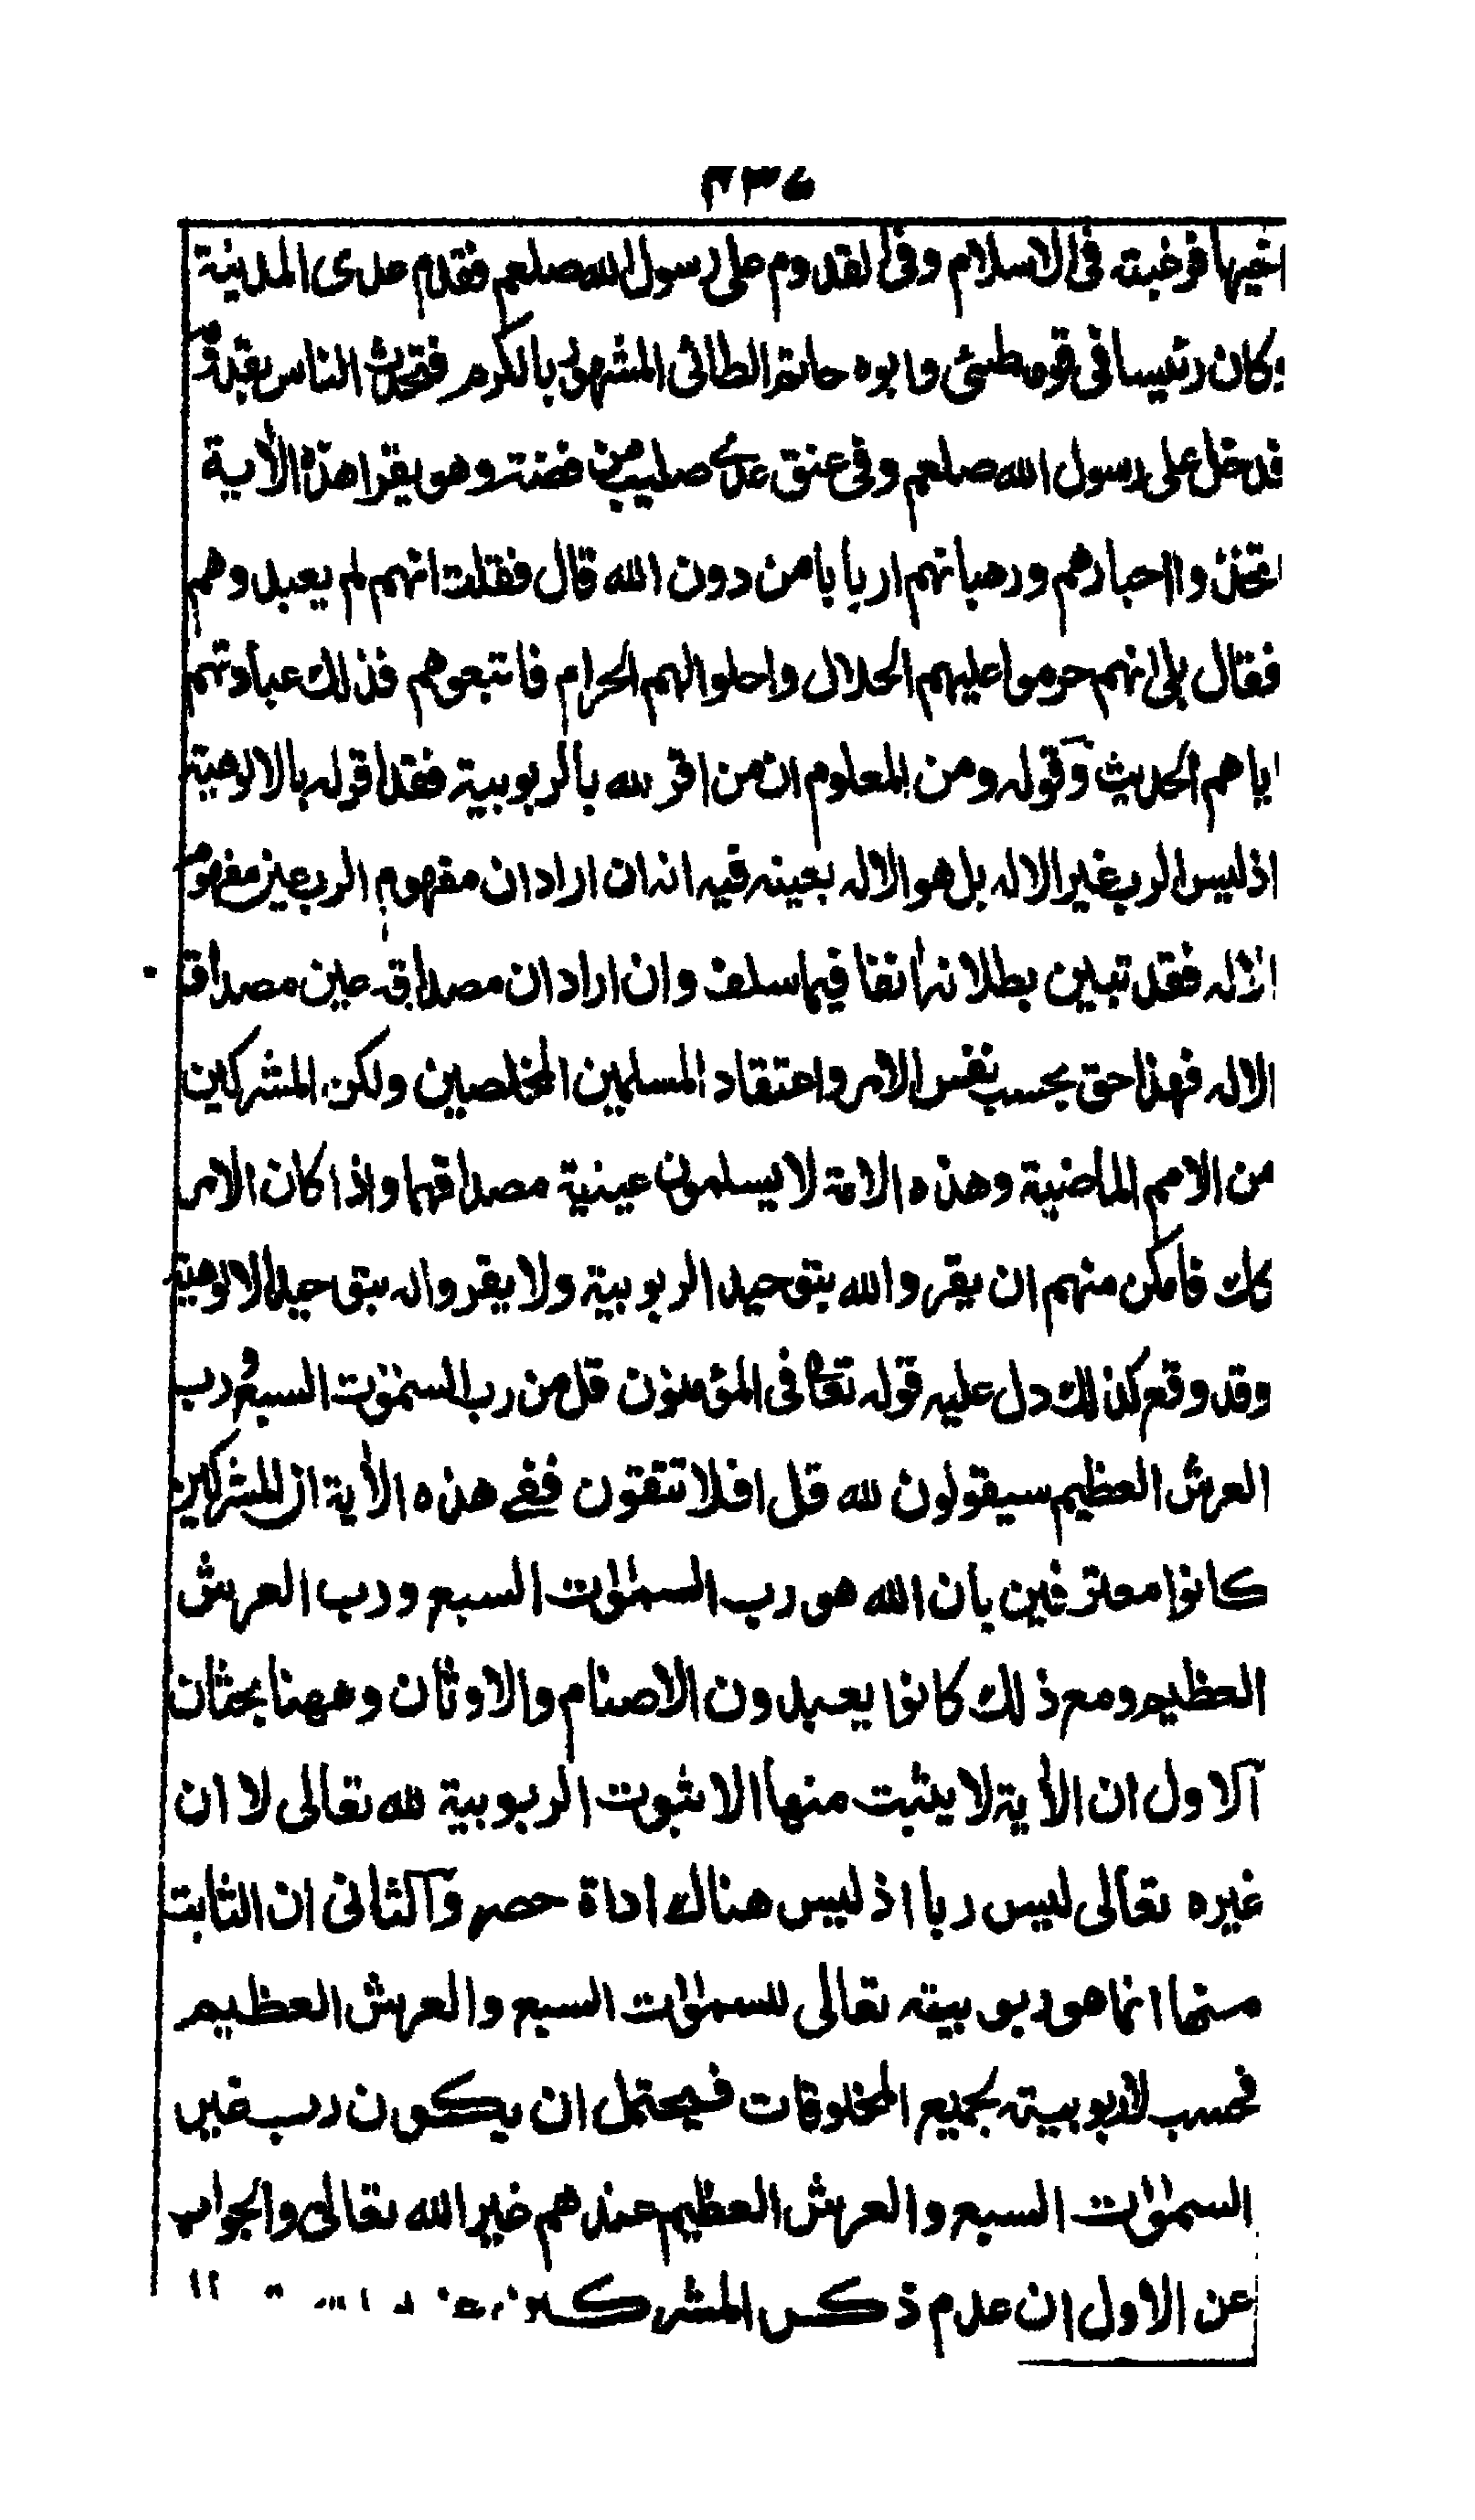 اخيها فرغبته فى الاسلام وفى القدوم على رسول الله صلعم فقدم عدى المدينة
وكان رئيسا فى قومه طئ وابوه حاتم الطائى المشهور بالكرم فتحدث الناس بقدومه
فدخل على رسول الله صلعم وفى عنق عدى صليب من فضة وهو يقرا هذه الأية
اتخذوا احبارهم ورهبانهم اربابا من دون الله قال فقلت انهم لم يعبدوهم
فقال بلى انهم حرموا عليهم الحلال واحلوا لهم الحرام فاتبعوهم فذلك عبادتهم
اياهم الحديث وقوله ومن المعلوم ان من اقر لله بالربوبية فقد اقر له بالالوهية
اذ ليس الرب غير الاله بل هو الاله بعينه فيه انه ان اراد ان مفهوم الرب عين مفهوم
الاله فقد تبين بطلانه أنفا فيما سلف وان اراد ان مصداقه عين مصداق
الاله فهذا حق بحسب نفس الامر واعتقاد المسلمين المخلصين ولكن المشركين
من الامم الماضية وهذه الامة لا يسلمون عينية مصداقهما واذا كان الامر
كك فامكن منهم ان يقروا لله بتوحيد الربوبية ولا يقروا له بتوحيد الالوهية
وقد وقع كذلك دل عليه قوله تعا فى المؤمنون قل من رب السموت السبع ورب
العرش العظيم سيقولون لله قل افلا تتقون ففى هذه الأية ان المشركين
كانوا معترفين بان الله هو رب السموات السبع ورب العرش
العظيم ومع ذلك كانوا يعبدون الاصنام والاوثان وههنا بحثان
آلاول ان الأية لا يثبت منها الا ثبوت الربوبية لله تعالى لا ان
غيره تعالى ليس ربا اذ ليس هناك اداة حصر وآلثانى ان الثابت
منها انما هو ربوبيته تعالى للسموات السبع والعرش العظيم
فحسب لا ربوبيته لجميع المخلوقات فيحتمل ان يكون رب غير
السموات السبع والعرش العظيم عندهم غير الله تعالى والجواب
عن الاول ان عدم ذكر المشركين